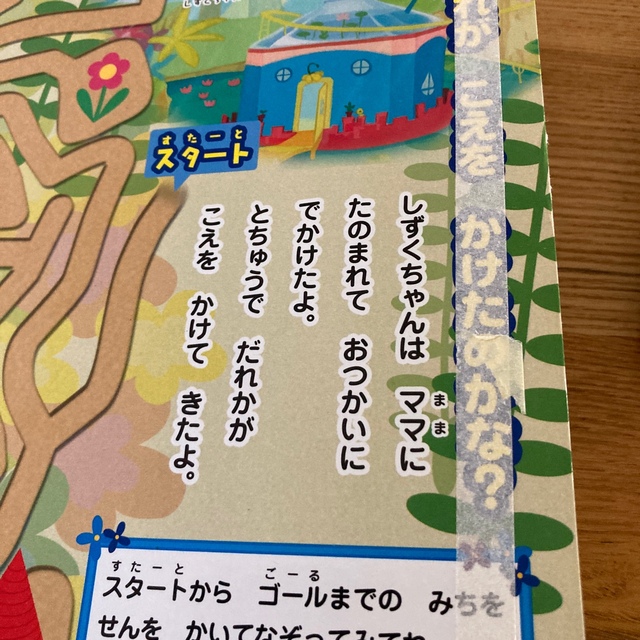 れか こえを かけたのかな?
すたーと
スタート
しずくちゃんは ママに
まま
たのまれて おつかいに
でかけたよ。
とちゅうで だれかが
こえを かけて きたよ。
すたーと ごーる
スタートから ゴールまでの みちを
せんを かいてなぞってみてね